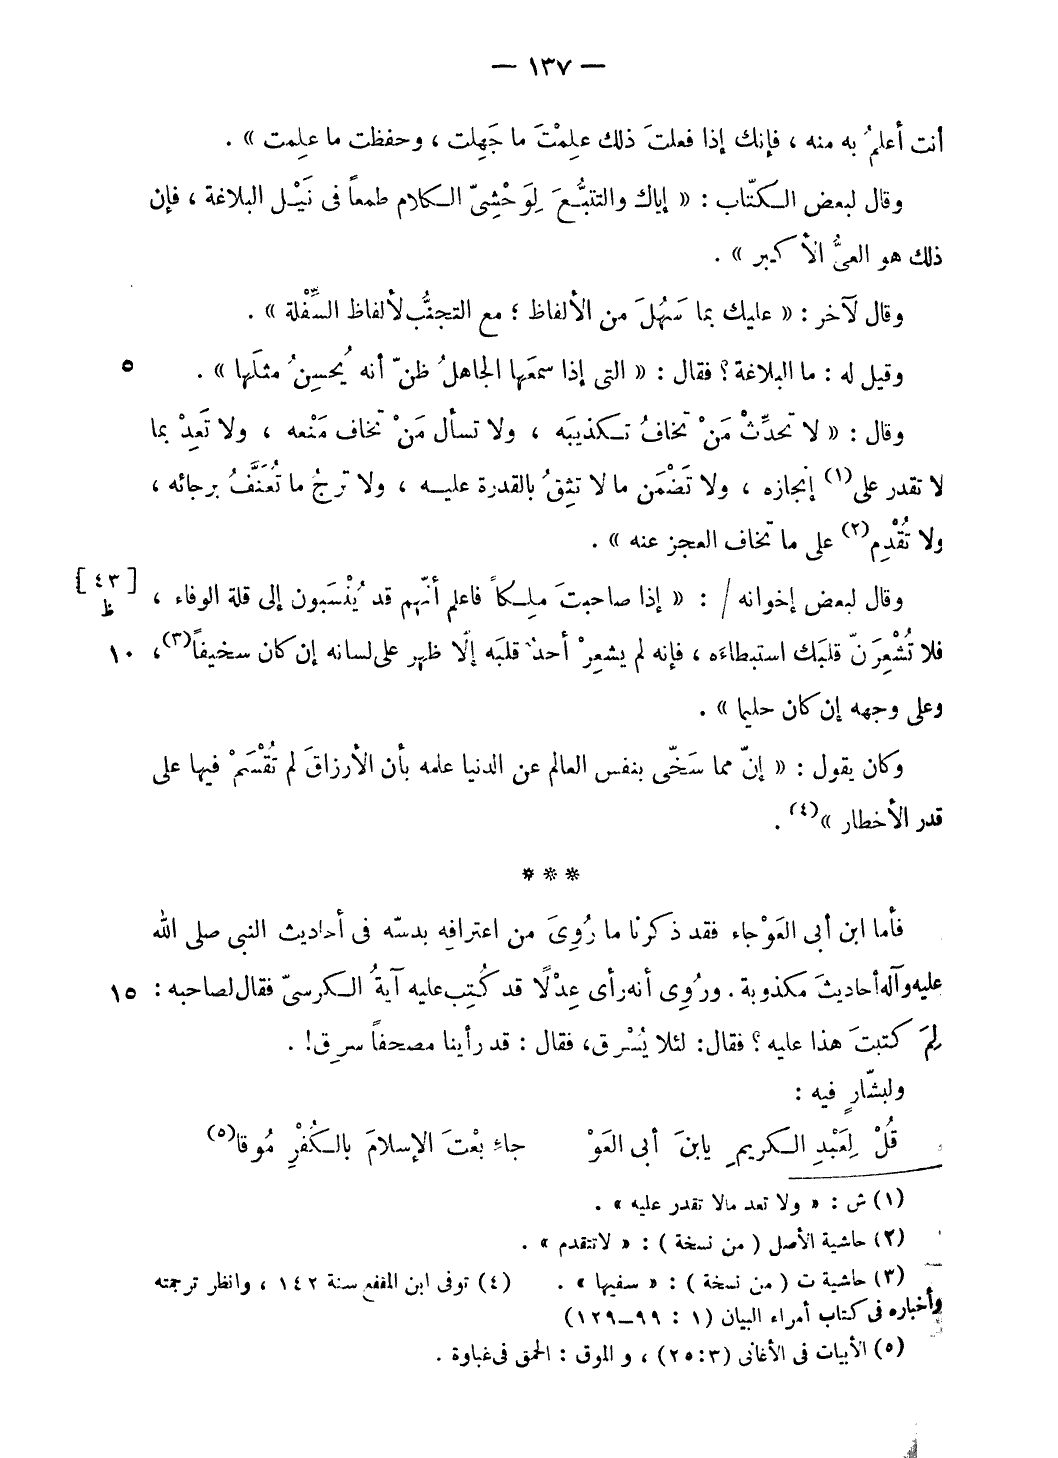 — ١٣٧ —
أنت أعلمُ به منه ، فإنك إذا فعلتَ ذلك علِمْتَ ما جَهِلت ، وحفظت ما علِمت » .
وقال لبعض الكتّاب : « إياك والتتبُّعَ لِوَحْشِىّ الكلام طمعاً فى نَيْل البلاغة ، فإن
ذلك هو العىُّ الأكبر » .
وقال لآخر : « عليك بما سَهُلَ من الألفاظ ؛ مع التجنُّب لألفاظ السِّفْلة » .
وقيل له : ما البلاغة ؟ فقال : « التى إذا سمعَها الجاهلُ ظنّ أنه يُحسِنُ مثلَها » . ٥
وقال : « لا تحدِّثْ مَنْ تخافُ تكذيبَه ، ولا تسأل مَنْ تخاف مَنْعه ، ولا تَعِدْ بما
لا تقدر على(١) إنجازه ، ولا تَضْمَن ما لا تثِقُ بالقدرة عليه ، ولا ترجُ ما تُعَنَّفُ برجائه ،
ولا تُقْدِم(٢) على ما تخاف العجز عنه » .
وقال لبعض إخوانه / : « إذا صاحبتَ ملِكاً فاعلم أنّهم قد يُنْسَبون إلى قلة الوفاء ، [ ٤٣ ظ ]
فلا تُشْعِرَنّ قلبَك استبطاءَه ، فإنه لم يشعِرْ أحدٌ قلبَه إلّا ظهر على لسانه إن كان سخيفاً(٣)، ١٠
وعلى وجهه إن كان حليما » .
وكان يقول : « إنّ مما سَخّى بنفس العالم عن الدنيا علمه بأن الأرزاقَ لم تُقْسَمْ فيها على
قدر الأخطار »(٤) .
***
فأما ابن أبى العَوْجاء فقد ذكرنا ما رُوِىَ من اعترافه بدسّه فى أحاديث النبى صلى الله
عليه وآله أحاديثَ مكذوبة . ورُوِى أنه رأى عِدْلًا قد كُتِب عليه آيةُ الكرسىّ فقال لصاحبه : ١٥
لِمَ كتبتَ هذا عليه ؟ فقال : لئلا يُسْرق، فقال : قد رأينا مصحفاً سرِق! .
ولبشّارٍ فيه :
قُلْ لِعَبْدِ الكريمِ يابنَ أبى العَوْ جاءِ بعْتَ الإسلامَ بالكُفْرِ مُوقا(٥)
(١) ش : « ولا تعد مالا تقدر عليه » .
(٢) حاشية الأصل ( من نسخة ) : « لاتتقدم » .
(٣) حاشية ت ( من نسخة ) : « سفيها » . (٤) توفى ابن المقفع سنة ١٤٢ ، وانظر ترجمته
وأخباره فى كتاب أمراء البيان (١ : ٩٩ــ١٢٩)
(٥) الأبيات فى الأغانى (٣ : ٢٥) ، و الموق : الحمق فى غباوة .